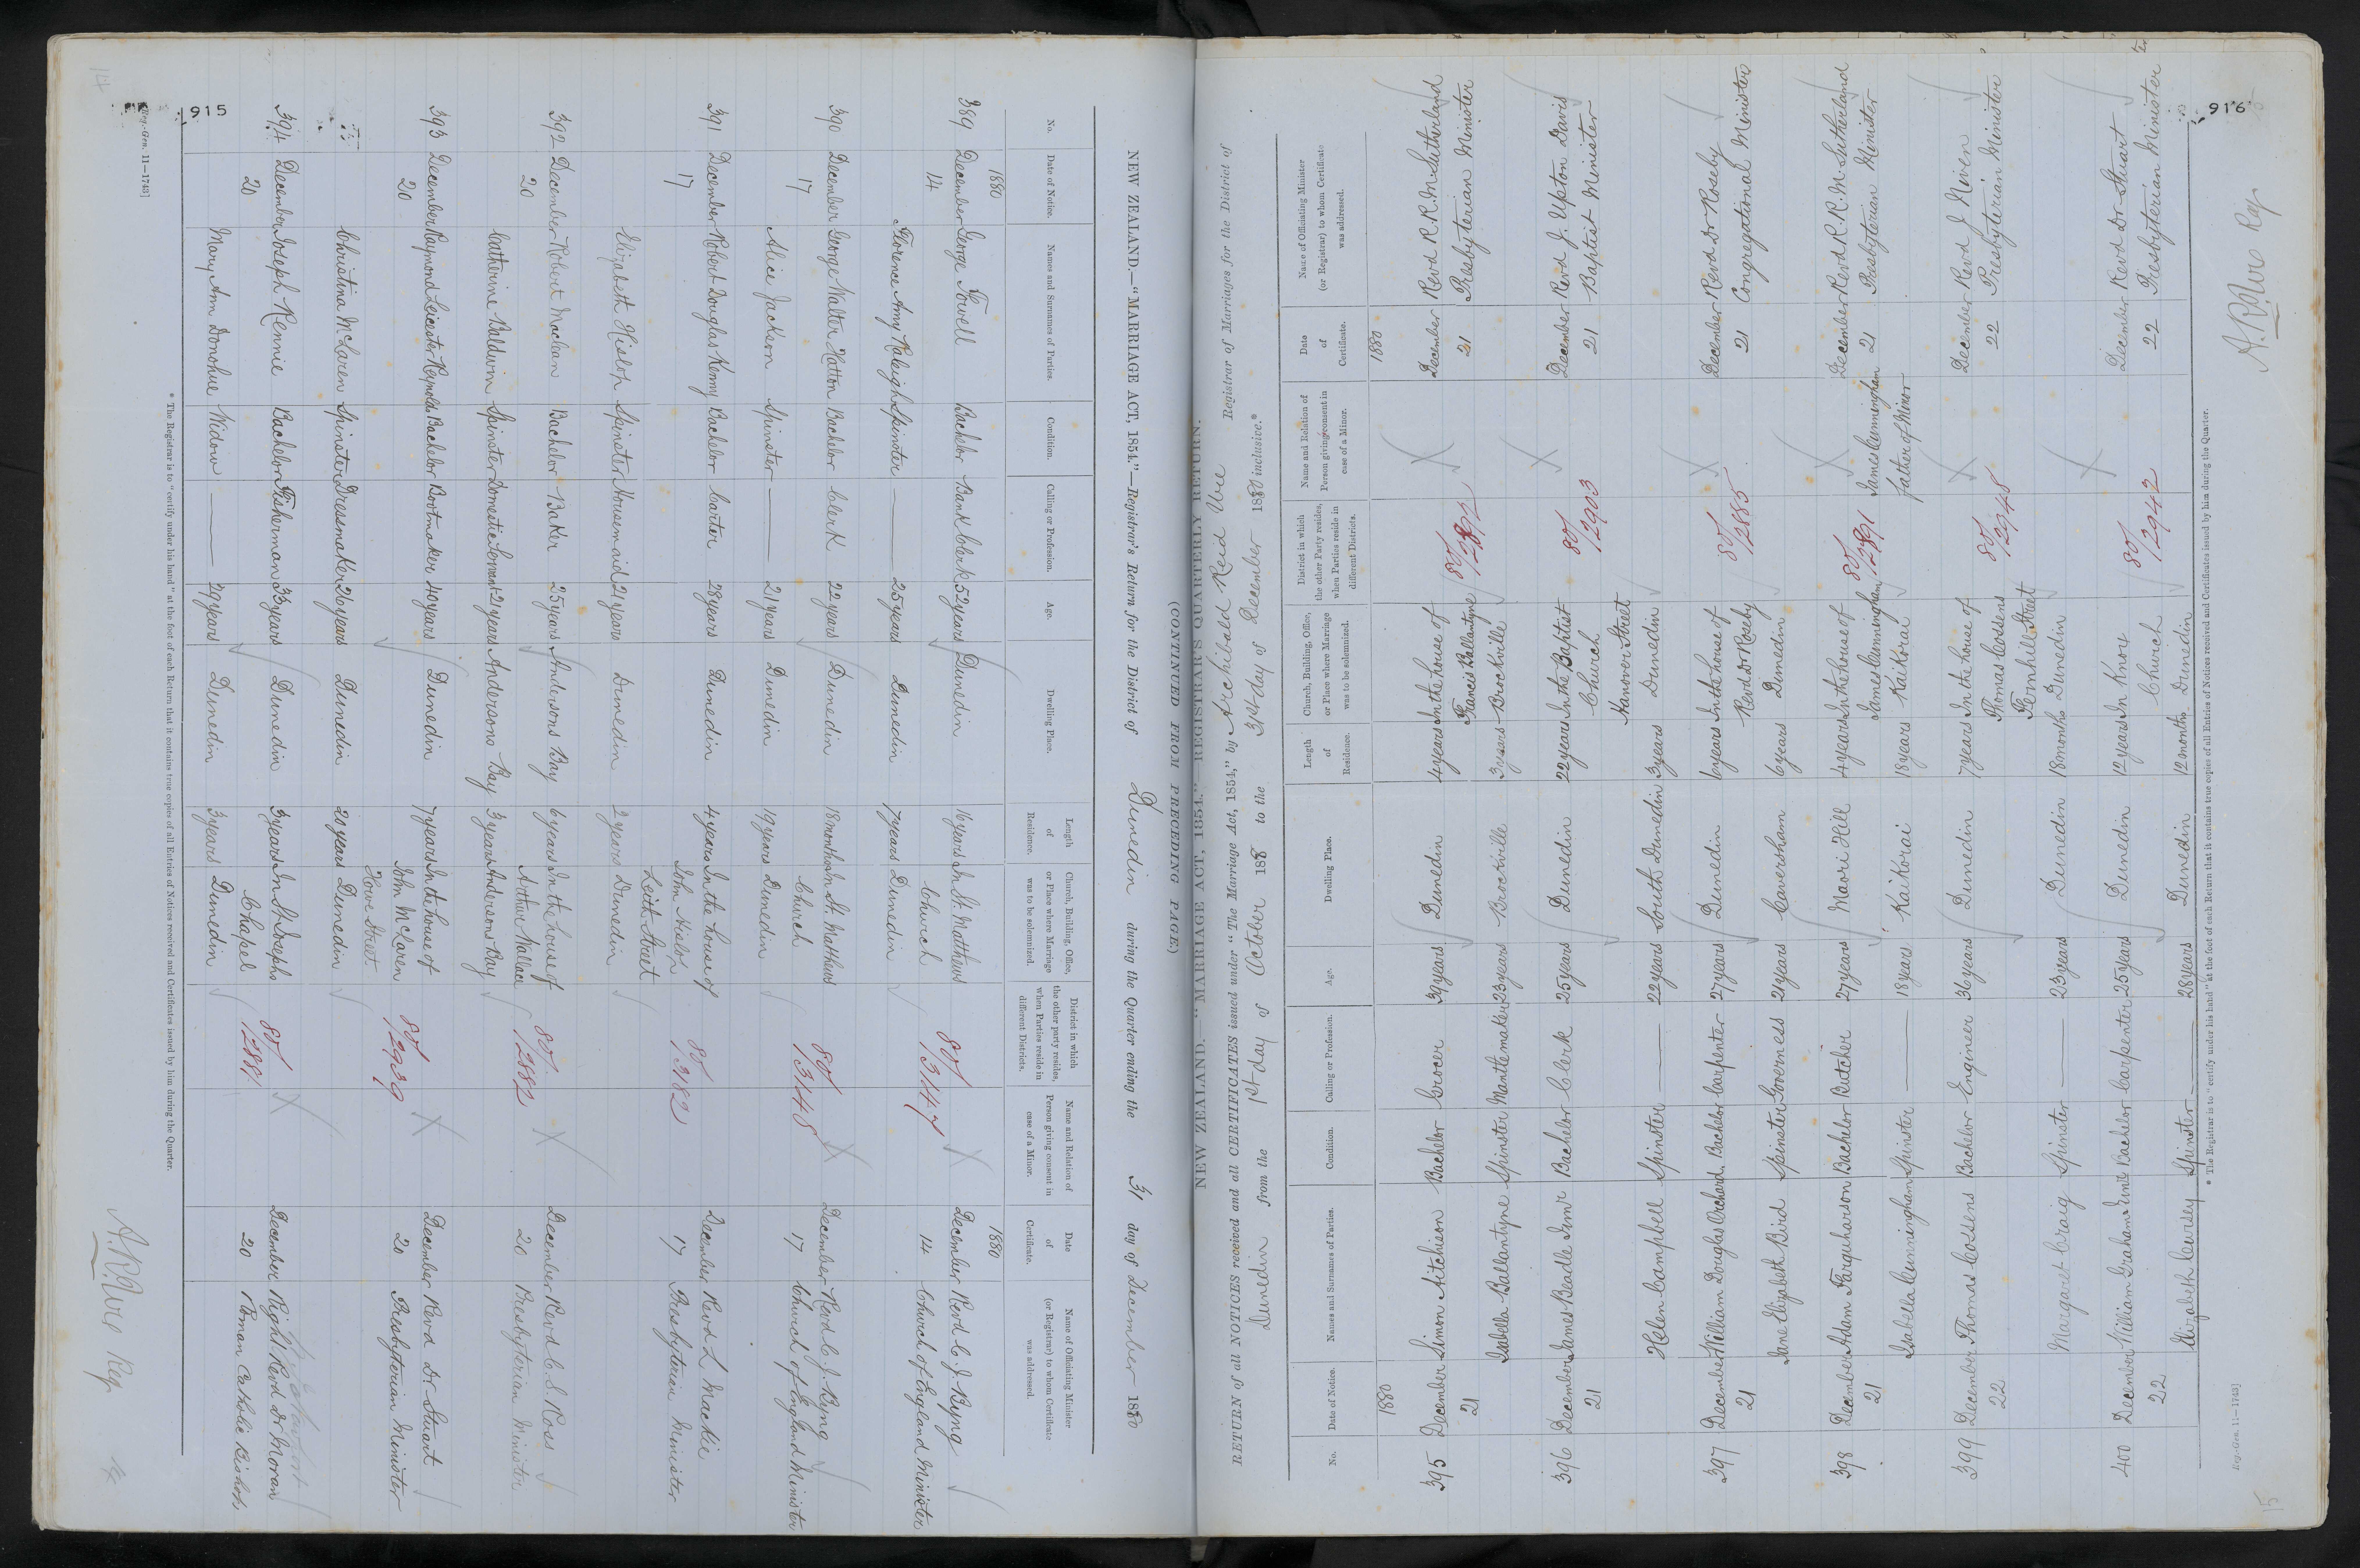 915
NEW ZEALAND.—"MARRIAGE ACT, 1854."—Registrar's Return for the District of Dunedin during the Quarter ending the 31 day of December 1880
(CONTINUED FROM PRECEDING PAGE.)
No. Date of Notice. Names and Surnames of Parties. Condition. Calling or Profession. Age. Dwelling Place. Length of Residence. Church, Building, Office, or Place where Marriage was to be solemnized. District in which the other party resides, when Parties reside in different Districts. Name and Relation of Person giving consent in case of a Minor. Date of Certificate. Name of Officiating Minister (or Registrar) to whom Certificate was addressed.
1880 1880
389 December George Fowell Bachelor Bank Clerk 52 years Dunedin 16 years In St. Matthews 80/3147 X December Revd C. J. Byng
14 Church 14 Church of England Minister
Florence Amy Raleigh Spinster — 25 years Dunedin 17 years Dunedin
390 December George Walter Hatton Bachelor Clerk 22 years Dunedin 18 months In St. Matthews 80/3148 X December Revd C. J. Byng
17 Church 17 Church of England Minister
Alice Jackson Spinster — 21 years Dunedin 19 years Dunedin
391 December Robert Douglas Kenny Bachelor Carter 28 years Dunedin 4 years In the house of 80/3182 December Revd L Mackie
17 John Hislop 17 Presbyterian Minister
Leith Street
Elizabeth Hislop Spinster Housemaid 21 years Dunedin 2 years Dunedin
392 December Robert Maclean Bachelor Baker 25 years Andersons Bay 6 years In the house of 80/2882 X December Revd C. S. Ross
20 Arthur Wallace 20 Presbyterian Minister
Catherine Baldwin Spinster Domestic Servant 21 years Andersons Bay 3 years Andersons Bay
393 December Raymond Leicester Reynolds Bachelor Bootmaker 40 years Dunedin 7 years In the house of 80/2939 X December Revd Dr Stuart
20 John McLaren 20 Presbyterian Minister
Howe Street
Christina McLaren Spinster Dressmaker 26 years Dunedin 20 years Dunedin
394 December Joseph Rennie Bachelor Fisherman 33 years Dunedin 3 years In St. Josephs 80/ X December Right Revd Dr Moran
20 Chapel 20 Roman Catholic Bishop
Mary Ann Donohue Widow — 29 years Dunedin 3 years Dunedin
* The Registrar is to "certify under his hand" at the foot of each Return that it contains true copies of all Entries of Notices received and Certificates issued by him during the Quarter.
Reg.-Gen. 11—1743]
A. R. Ure Reg
14
916
NEW ZEALAND.—"MARRIAGE ACT, 1854." REGISTRAR'S QUARTERLY RETURN.
RETURN of all NOTICES received and all CERTIFICATES issued under "The Marriage Act, 1854," by Archibald Reid Ure Registrar of Marriages for the District of
Dunedin from the 1st day of October 188 to the 31st day of December 1880 inclusive.*
No. Date of Notice. Names and Surnames of Parties. Condition. Calling or Profession. Age. Dwelling Place. Length of Residence. Church, Building, Office, or Place where Marriage was to be solemnized. District in which the other Party resides, when Parties reside in different Districts. Name and Relation of Person giving consent in case of a Minor. Date of Certificate. Name of Officiating Minister (or Registrar) to whom Certificate was addressed.
1880 1880
395 December Simon Aitchison Bachelor Grocer 39 years Dunedin 4 years In the house of 80/2892 X December Revd R. R. M. Sutherland
21 Francis Ballantyne 21 Presbyterian Minister
Isabella Ballantyne Spinster Mantlemaker 23 years Brockville 3 years Brockville
396 December James Beadle Bachelor Clerk 25 years Dunedin 22 years In the Baptist 80/2903 X December Revd J. Upton Davis
21 Church 21 Baptist Minister
Hanover Street
Helen Campbell Spinster — 22 years South Dunedin 3 years Dunedin
397 December William Douglas Orchard Bachelor Carpenter 27 years Dunedin 6 years In the house of 80/2885 X December Revd Dr Roseby
21 Revd Dr Roseby 21 Congregational Minister
Jane Elizabeth Bird Spinster Governess 21 years Caversham 6 years Dunedin
398 December Adam Farquharson Bachelor Butcher 27 years Maori Hill 4 years In the house of 80/2891 X December Revd R. R. M. Sutherland
21 James Cunningham James Cunningham 21 Presbyterian Minister
Isabella Cunningham Spinster — 18 years Kaikorai 18 years Kaikorai father of Minor
399 December Thomas Cossens Bachelor Engineer 36 years Dunedin 7 years In the house of 80/2948 X December Revd J Niven
22 Thomas Cossens 22 Presbyterian Minister
Fernhill Street
Margaret Craig Spinster — 23 years Dunedin 18 months Dunedin
400 December William Graham Bachelor Carpenter 25 years Dunedin 12 years In Knox 80/2942 X December Revd Dr Stuart
22 Church 22 Presbyterian Minister
Elizabeth Cursley Spinster — 28 years Dunedin 12 months Dunedin
* The Registrar is to "certify under his hand" at the foot of each Return that it contains true copies of all Entries of Notices received and Certificates issued by him during the Quarter.
Reg.-Gen. 11—1743]
A. R. Ure Reg
15